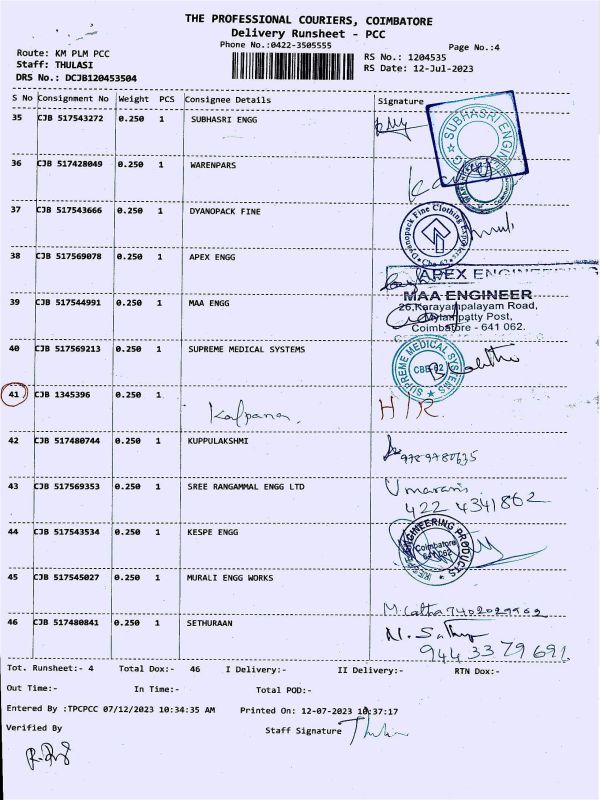 THE PROFESSIONAL COURIERS, COIMBATORE
Delivery Runsheet - PCC
Phone No.:0422-3505555
Page No.:4
Route: KM PLM PCC
Staff: THULASI
DRS No.: DCJB120453504
RS No.: 1204535
RS Date: 12-Jul-2023
S No Consignment No Weight PCS Consignee Details Signature
35 CJB 517543272 0.250 1 SUBHASRI ENGG
SUBHASRI ENGIN
36 CJB 517428049 0.250 1 WARENPARS
37 CJB 517543666 0.250 1 DYANOPACK FINE
Dyanopack Fine Clothing Exporters
38 CJB 517569078 0.250 1 APEX ENGG
APEX ENGIN
39 CJB 517544991 0.250 1 MAA ENGG
MAA ENGINEER
26,Karayampalayam Road,
Mylampatty Post,
Coimbatore - 641 062.
40 CJB 517569213 0.250 1 SUPREME MEDICAL SYSTEMS
SUPREME MEDICAL SYSTEMS
CBE-62
41 CJB 1345396 0.250 1 Kalpana. H/R.
42 CJB 517480744 0.250 1 KUPPULAKSHMI
9789780635
43 CJB 517569353 0.250 1 SREE RANGAMMAL ENGG LTD
422 4341862
44 CJB 517543534 0.250 1 KESPE ENGG
KESPE ENGINEERING PRODUCTS
Coimbatore
641 062
45 CJB 517545027 0.250 1 MURALI ENGG WORKS
M. Latha 7402029962
46 CJB 517480841 0.250 1 SETHURAAN
N. Sathya
9443379691.
Tot. Runsheet:- 4 Total Dox:- 46 I Delivery:- II Delivery:- RTN Dox:-
Out Time:- In Time:- Total POD:-
Entered By :TPCPCC 07/12/2023 10:34:35 AM Printed On: 12-07-2023 10:37:17
Verified By Staff Signature